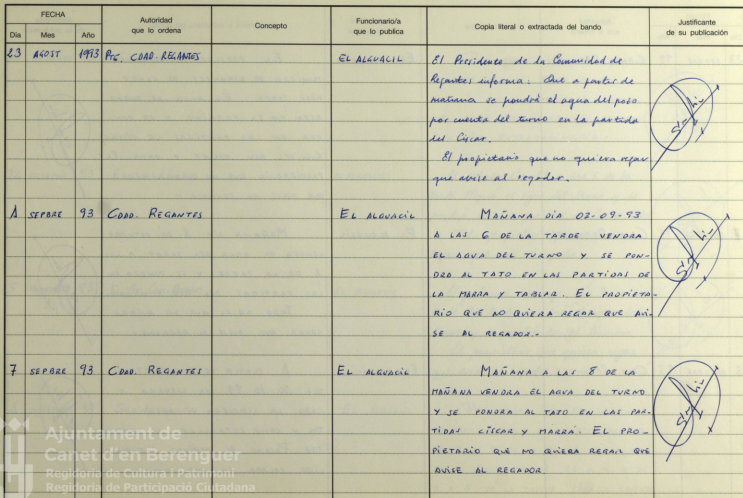 FECHA
Dia Mes Año
Autoridad
que lo ordena
Concepto
Funcionario/a
que lo publica
Copia literal o extractada del bando
Justificante
de su publicación
23 AGOST 1993 Pte. CDAD. REGANTES EL ALGUACIL
El Presidente de la Comunidad de
Regantes informa: Que a partir de
mañana se pondrá el agua del poso
por cuenta del turno en la partida
del Ciscar.
El propietario que no quiera regar
que avise al regador.
1 SEPBRE 93 CDAD. REGANTES EL ALGUACIL
MAÑANA DIA 02-09-93
A LAS 6 DE LA TARDE VENDRA
EL AGUA DEL TURNO Y SE PON-
DRA AL TATO EN LAS PARTIDAS DE
LA MARRA Y TABLAR. EL PROPIETA-
RIO QUE NO QUIERA REGAR QUE AVI-
SE AL REGADOR.-
7 SEPBRE 93 CDAD. REGANTES EL ALGUACIL
MAÑANA A LAS 8 DE LA
MAÑANA VENDRA EL AGUA DEL TURNO
Y SE PONDRA AL TATO EN LAS PAR-
TIDAS CÍSCAR Y MARRA. EL PRO-
PIETARIO QUE NO QUIERA REGAR QUE
AVISE AL REGADOR
Ajuntament de
Canet d'en Berenguer
Regidoria de Cultura i Patrimoni
Regidoria de Participació Ciutadana